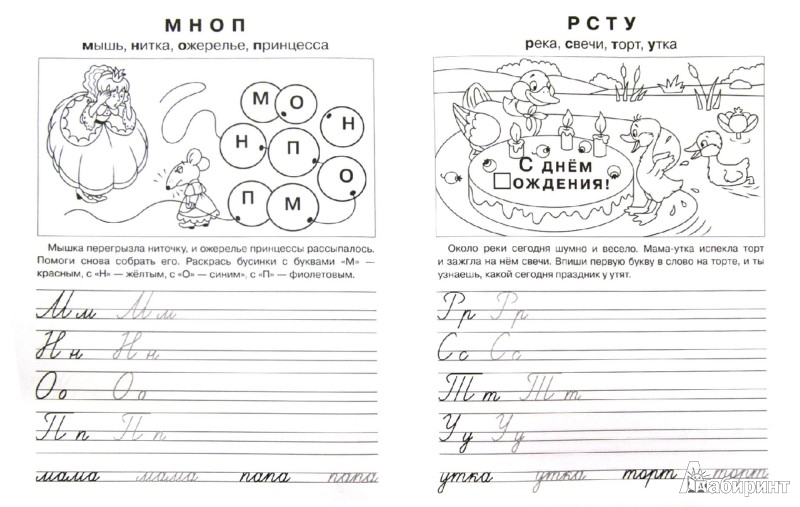 М Н О П
мышь, нитка, ожерелье, принцесса
М О
Н П Н
П М О
Мышка перегрызла ниточку, и ожерелье принцессы рассыпалось.
Помоги снова собрать его. Раскрась бусинки с буквами «М» —
красным, с «Н» — жёлтым, с «О» — синим, с «П» — фиолетовым.
М м М м
Н н Н н
О о О о
П п П п
мама мама папа папа
Р С Т У
река, свечи, торт, утка
С ДНЁМ
□ОЖДЕНИЯ!
Около реки сегодня шумно и весело. Мама-утка испекла торт
и зажгла на нём свечи. Впиши первую букву в слово на торте, и ты
узнаешь, какой сегодня праздник у утят.
Р р Р р
С с С с
Т т Т т
У у У у
утка утка торт торт
Лабиринт